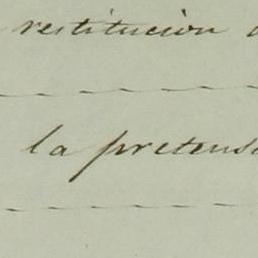 restitución
la pretens